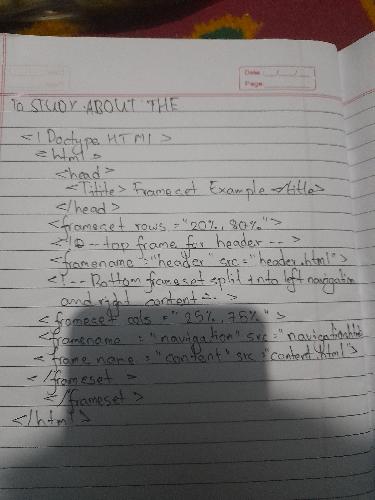 Date: __/__/__
Page:
To STUDY ABOUT THE
<! Doctype HTMl >
<html>
<head>
<Tittle> Frameset Example </title>
</head>
<frameset rows = "20%, 80%">
<!-- top frame for header -- >
<framename = "header" src = "header.html">
<!-- Bottom frameset split into left navigation
and right content -- >
< frameset cols = "25%, 75%" >
< framename = "navigation" src = "navigation.html
< frame name = "content" src = "content.html">
</frameset >
</frameset >
</html>